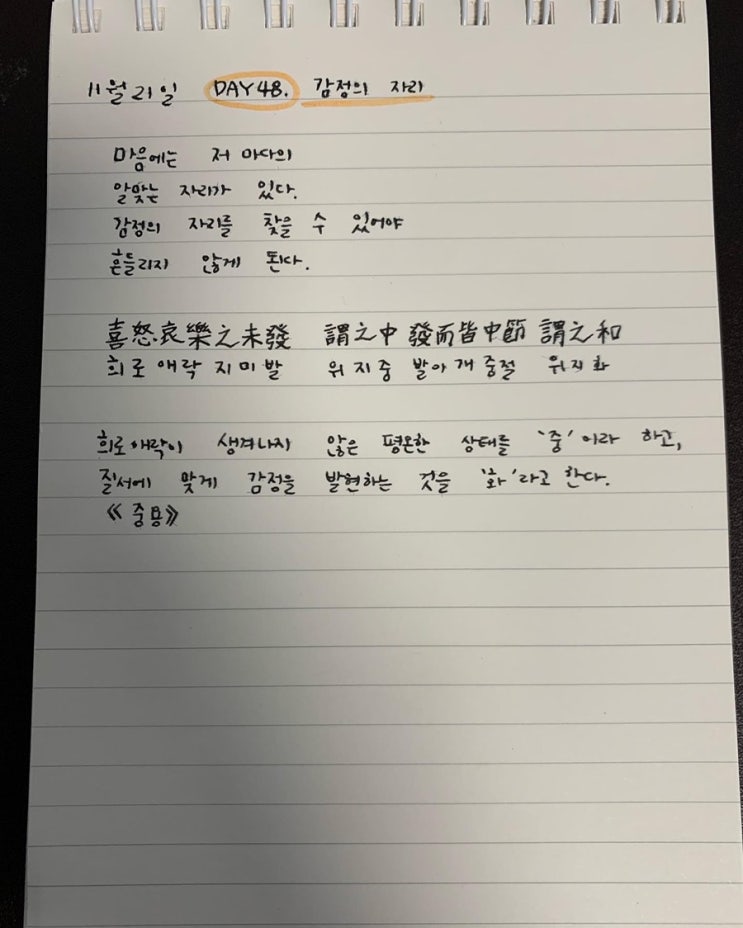 11월 21일 DAY 48. 감정의 자리
마음에는 저 마다의
알맞는 자리가 있다.
감정의 자리를 찾을 수 있어야
흔들리지 않게 된다.
喜怒哀樂之未發 謂之中 發而皆中節 謂之和
희로애락지미발 위지중 발아개중절 위지화
희로애락이 생겨나지 않은 평온한 상태를 '중'이라 하고,
질서에 맞게 감정을 발현하는 것을 '화'라고 한다.
《중용》